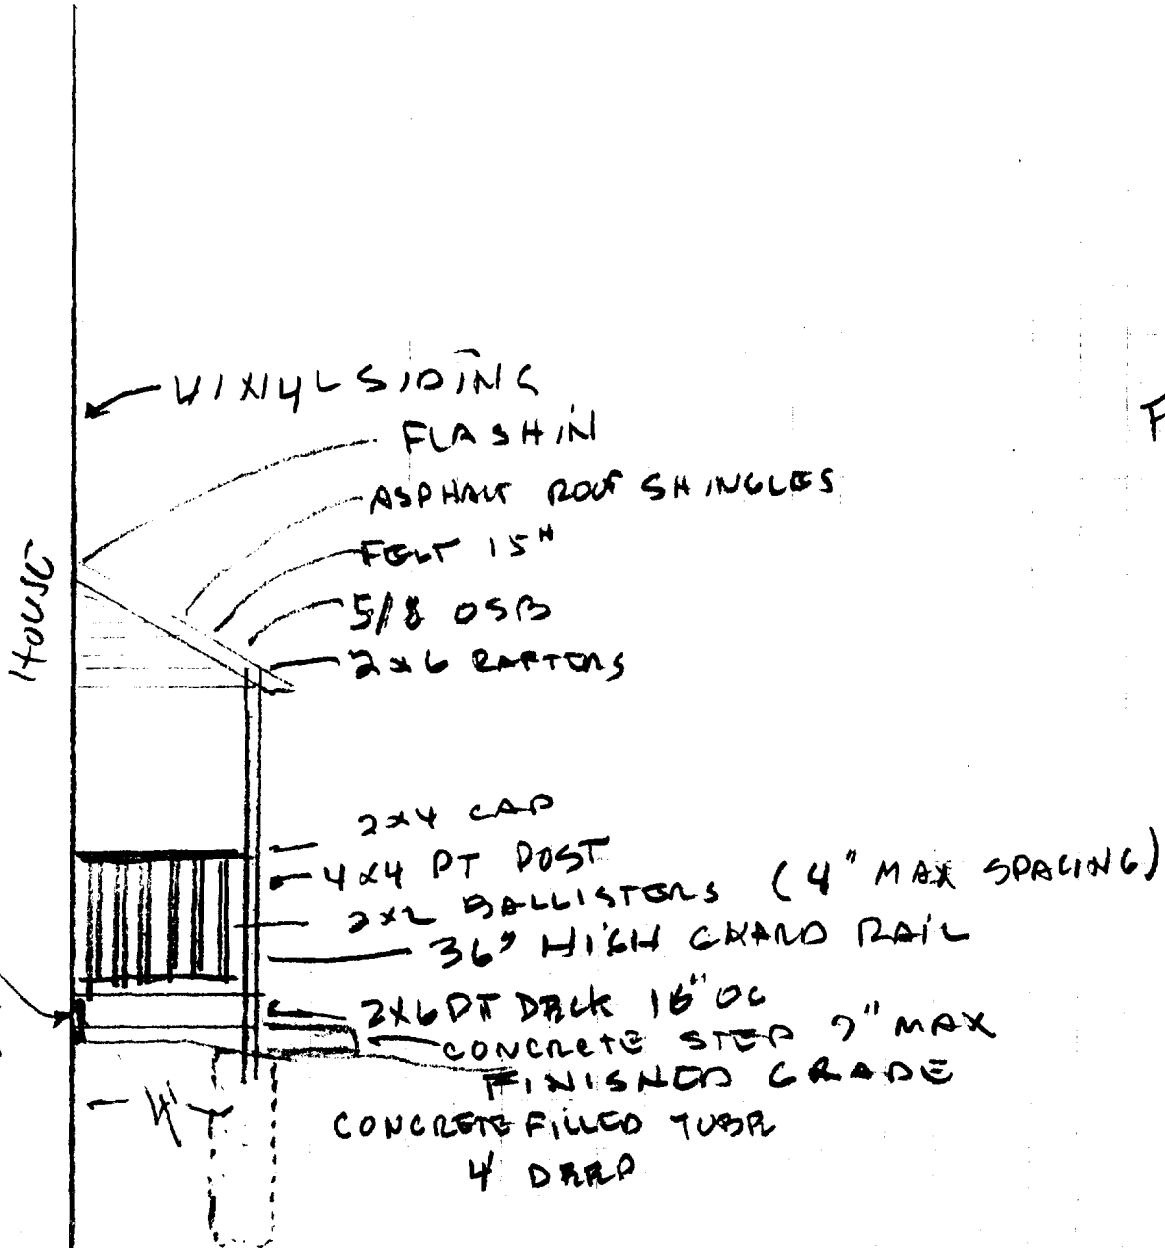 VINYL SIDING
FLASHIN
F
ASPHALT ROOF SHINGLES
FELT 15#
5/8 OSB
HOUSE
2x6 RAFTERS
2x4 CAP
4x4 PT POST
2x2 BALLISTERS (4" MAX SPACING)
36" HIGH GUARD RAIL
2x6 PT DECK 16" OC
CONCRETE STEP 7" MAX
FINISHED GRADE
4'
CONCRETE FILLED TUBE
4' DEEP